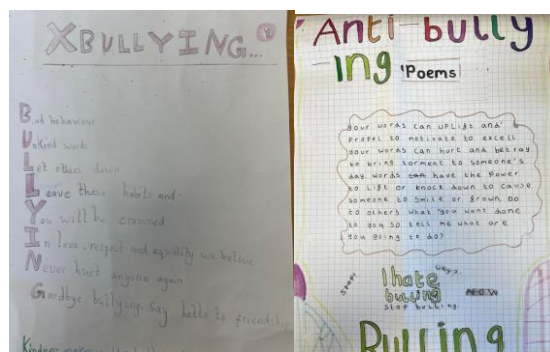 XBULLYING...
Bad behaviour
Unkind words
Let others down
Leave these habits and
You will be crowned
In love, respect and equality we believe
Never hurt anyone again
Goodbye bullying, say hello to friendship
Kindness
Anti-bully
-ing 'Poems
Your words can uplift and
propel to motivate to excell
your words can hurt and betray
be bring torment to someone's
day words can have the power
to lift or knock down to cause
someone to smile or grown do
to others what you want done
to you so tell me what are
you going to do?
I hate
bullying
Stop bullying.
NOW
Bulling